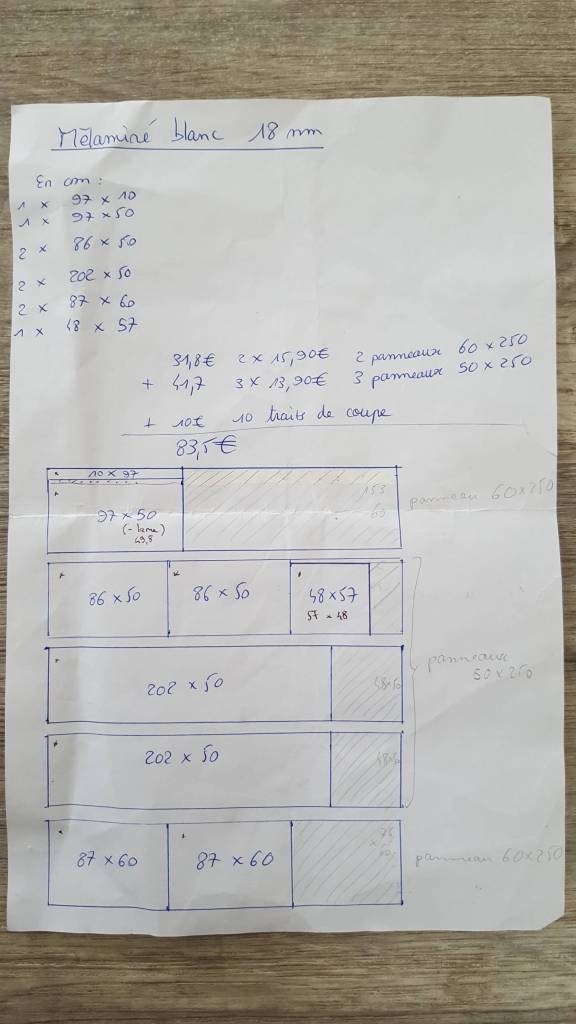 Mélaminé blanc 18 mm
En cm :
1 x 97 x 10
1 x 97 x 50
2 x 86 x 50
2 x 202 x 50
2 x 87 x 60
1 x 48 x 57
31,8€ 2 x 15,90€ 2 panneaux 60 x 250
+ 41,7 3 x 13,90€ 3 panneaux 50 x 250
+ 10€ 10 traits de coupe
83,5€
10 x 97
97 x 50
(- lame)
49,8
153
panneau 60x250
86 x 50
86 x 50
48 x 57
57 x 48
panneaux
50 x 250
202 x 50
48x50
202 x 50
48x50
87 x 60
87 x 60
x
60
panneau 60x250